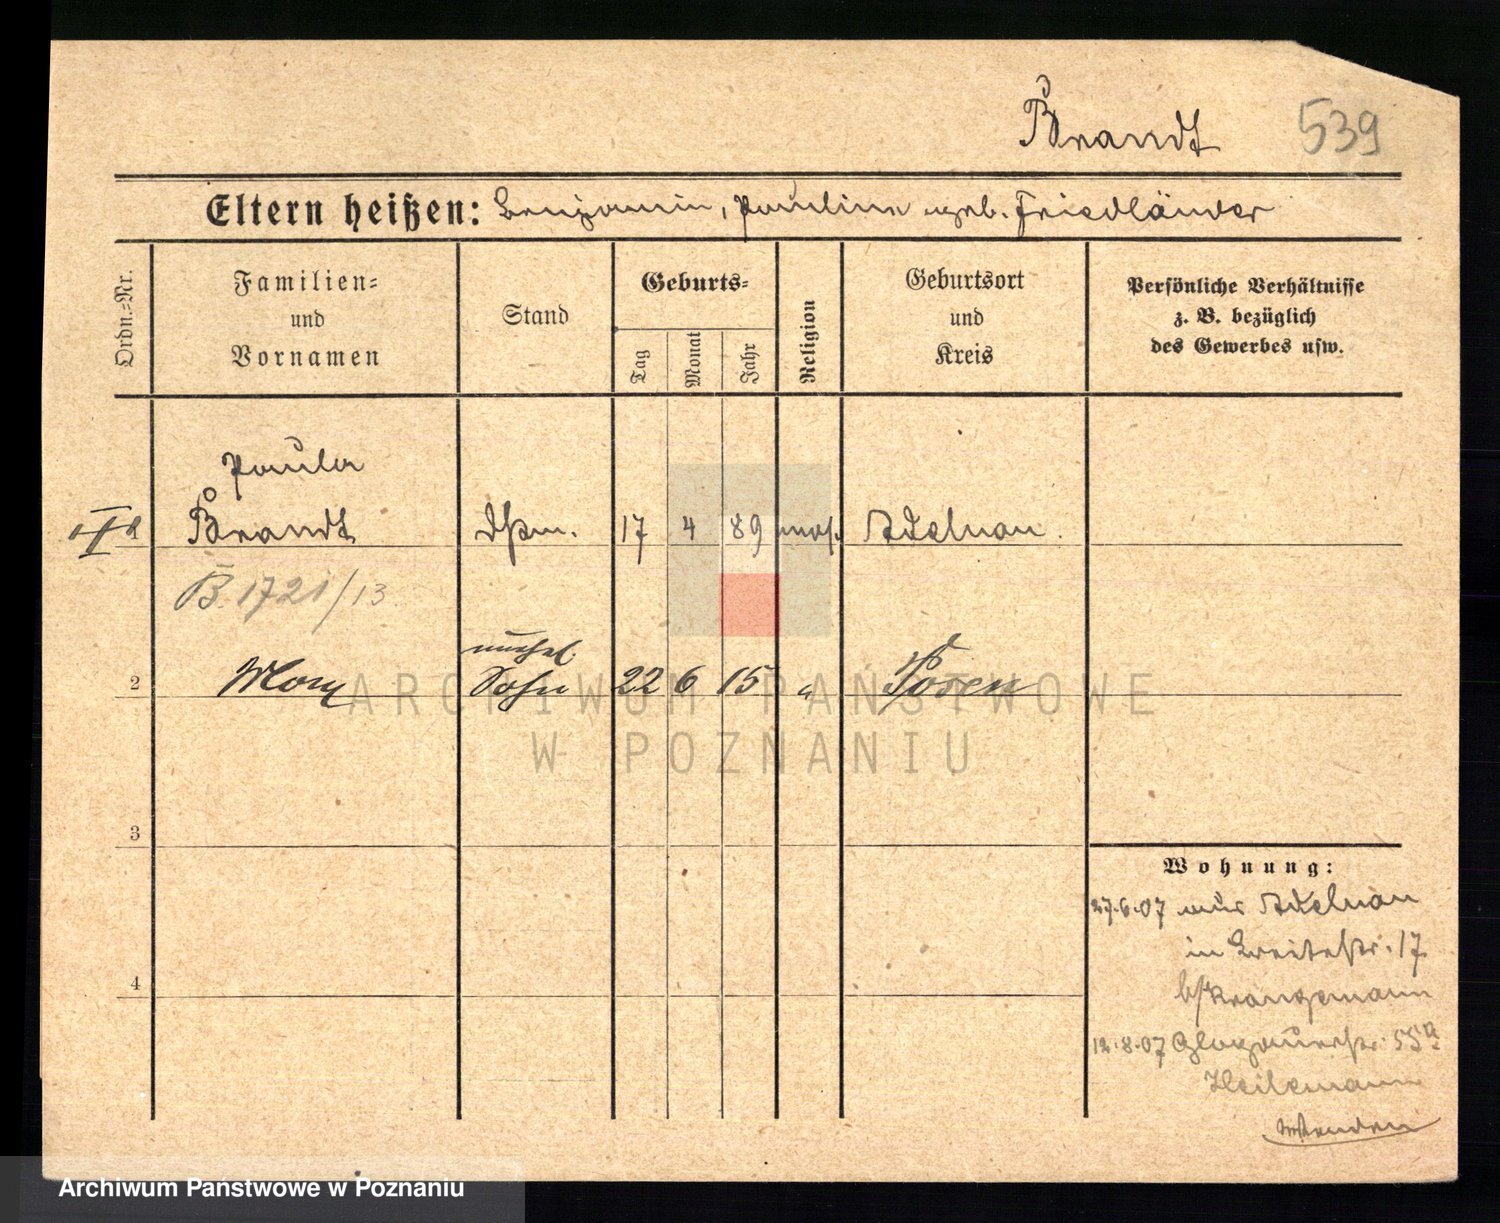 Brandt 539
Eltern heißen: Benjamin, Pauline geb. Friedländer
Ordn.-Nr.
Familien-
und
Vornamen
Stand
Geburts-
Tag Monat Jahr
Religion
Geburtsort
und
Kreis
Persönliche Verhältnisse
z. B. bezüglich
des Gewerbes usw.
Paula
Brandt 17 4 89 mos. Adelnau.
B. 1721/13
unehel.
2 Sohn 22 6 15 " Posen
ARCHIWUM PAŃSTWOWE
W POZNANIU
3
4
Wohnung:
27.6.07 aus Adelnau
in Breitestr. 17
b/Krangemann
12.8.07 Glogauerstr. 55a
Heilemann
Archiwum Państwowe w Poznaniu